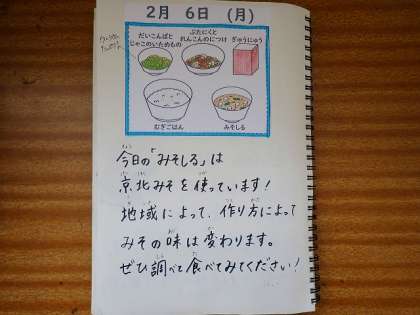 2月 6日 (月)
だいこんばと
じゃこのいためもの
ぶたにくと
れんこんのにつけ
ぎゅうにゅう
むぎごはん
みそしる
今日の「みそしる」は
京北みそを使っています!
地域によって、作り方によって
みその味は変わります。
ぜひ調べて食べてみてください!